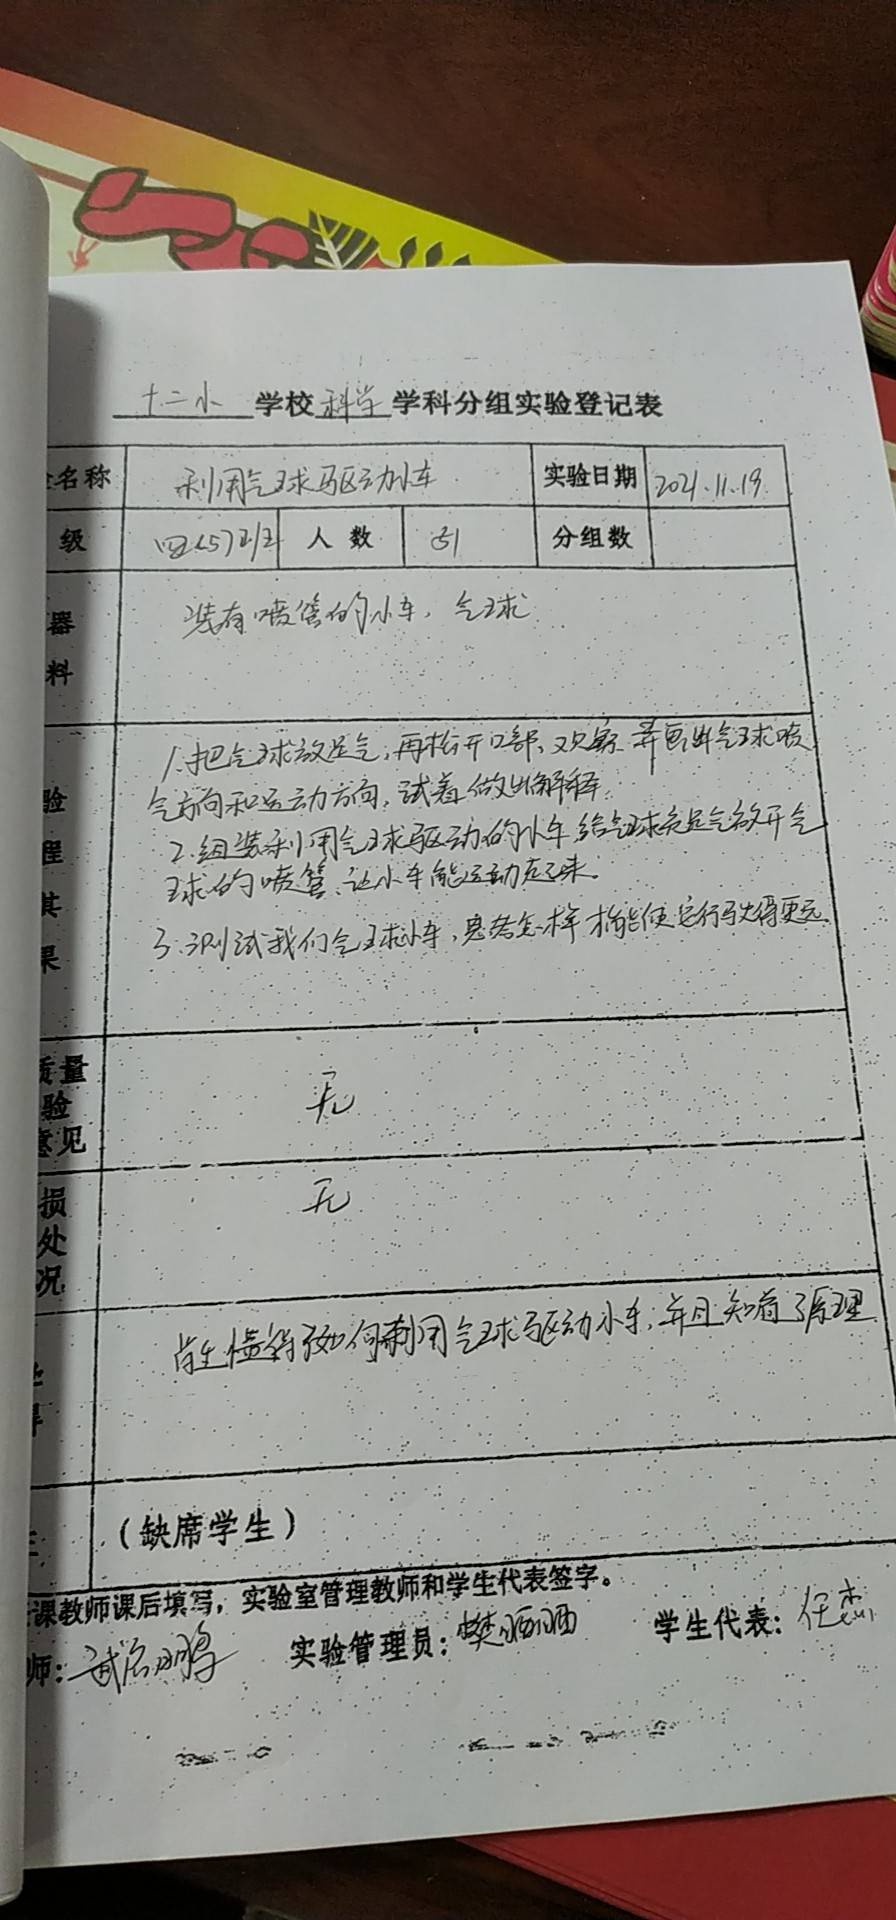 十二小 学校 科学 学科分组实验登记表
名称 利用气球驱动小车 实验日期 2021.11.19
级 四(5)班 人数 51 分组数
器 装有喷管的小车，气球
料
1.把气球放足气，再松开口部、观察并画出气球喷
气方向和运动方向，试着做出解释
验
2.组装利用气球驱动的小车给气球充足气放开气
程
球的喷管，让小车能运动起来。
其
3.测试我们气球小车，思考怎样才能使它行驶得更远
果
质量
验 无
意见
损 无
处
况
学生懂得了如何利用气球驱动小车，并且知道了原理
(缺席学生)
课教师课后填写，实验室管理教师和学生代表签字。
师： 鹏 实验管理员：樊丽丽 学生代表：任杰